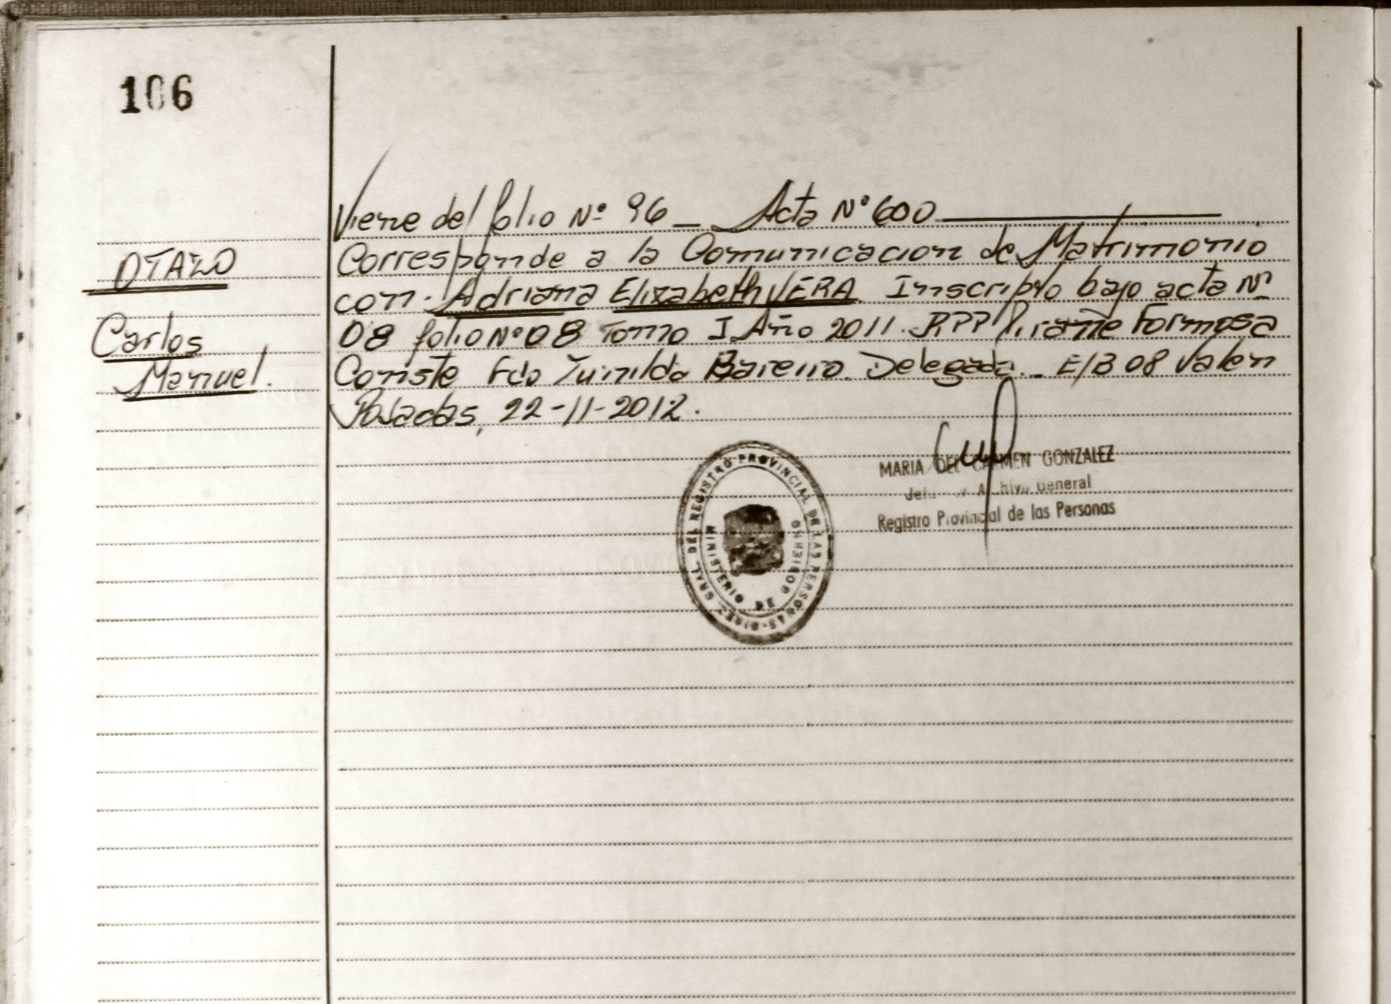 106
Viene del folio Nº 96 _ Acta Nº 600
OTAZO
Carlos
Manuel.
Corresponde a la Comunicacion de Matrimonio
con Adriana Elizabeth VERA Inscripto bajo acta Nº
08 folio Nº 08 Tomo I Año 2011. RPP Pirané Formosa
Conste Fdo Zunilda Bareiro Delegada _ E/B 08 Valen
Posadas, 22-11-2012.
MARIA DEL CARMEN GONZALEZ
Archivo General
Registro Provincial de las Personas
DIREC. GRAL. DEL REGISTRO PROVINCIAL DE LAS PERSONAS
MINISTERIO DE GOBIERNO